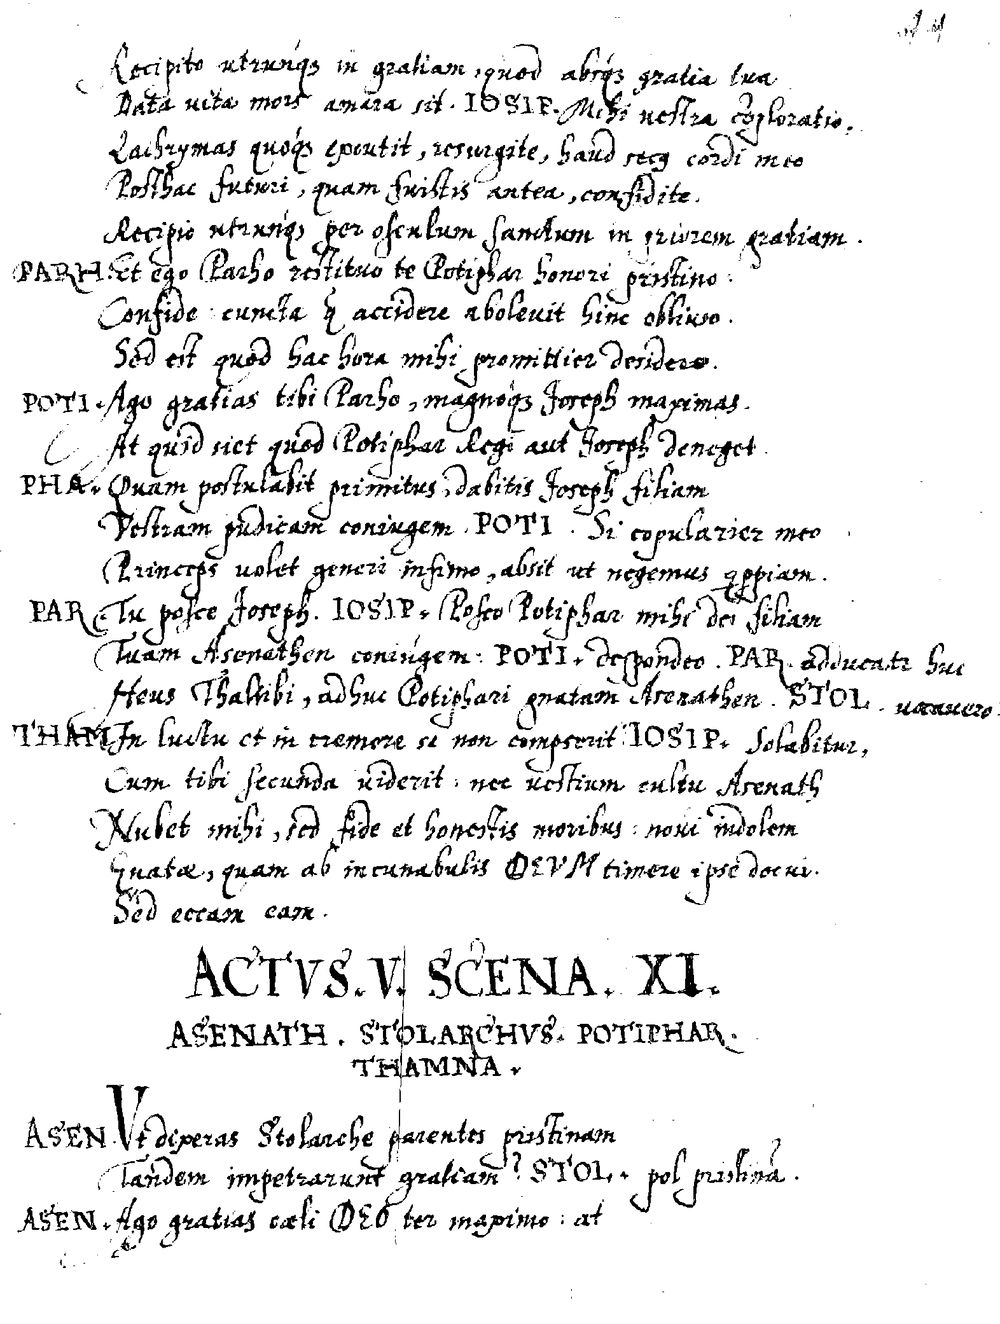 Recipito utrunq́; in gratiam, quod absq́; gratia tua
Data vita mors amara sit. IOSIP. Mihi vestra cōploratio,
Lachrymas quoq́; excutit, resurgite, haud secꝫ cordi meo
Posthac futuri, quam fuistis antea, confidite.
Recipio utrunq́; per osculum sanctum in priorem gratiam.
PARH. Et ego Parho restituo te Potiphar honori pristino:
Confide: cuncta q̄ accidere abolevit hinc oblivio.
Sed est quod hac hora mihi promittier desidero.
POTI. Ago gratias tibi Parho, magnoq́; Joseph maximas.
At quid siet quod Potiphar Regi aut Joseph deneget.
PHA. Quam postulabit primitus, dabitis Joseph filiam
Vestram pudicam coniugem. POTI. Si copularier meo
Princeps volet generi infimo, absit ut negemus ꝓppiam.
PAR. Tu posce Joseph. IOSIP. Posco Potiphar mihi des filiam
Tuam Asenathen coniúgem: POTI. despondeo. PAR. adducatr huc
Heus Thaltibi, adhuc Potiphari gnatam Asenathen. STOL. vocavero.
THAM. In luctu et in cremore se non compserit IOSIP. Solabitur,
Cum tibi secunda viderit: nec vestium cultu Asenath
Nubet mihi, sed fide et honestis moribus: novi indolem
Gnatæ, quam ab incunabulis DEVM timere ipse docui.
Sed eccam eam.
ACTVS. V. SCENA. XI.
ASENATH. STOLARCHVS. POTIPHAR.
THAMNA.
ASEN. Vt dixeras Stolarche parentes pristinam
Tandem impetrarunt gratiam? STOL. pol pristinā.
ASEN. Ago gratias cæli DEO ter maximo: at